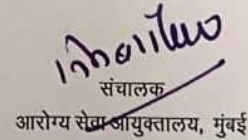 संचालक
आरोग्य सेवा आयुक्तालय, मुंबई